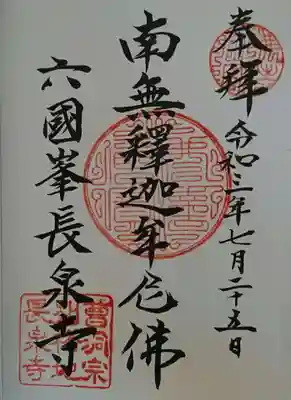 奉拝 令和三年七月二十五日
南無釋迦牟尼佛
六國峯長泉寺
曹洞宗
長泉寺